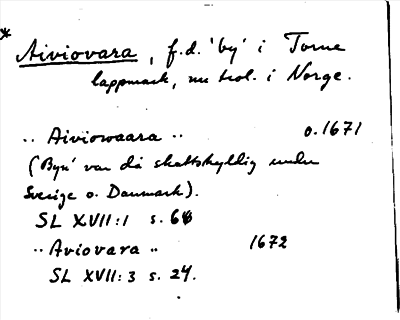 * Aiviovara, f.d. 'by' i Torne
lappmark, nu trol. i Norge.
.. Aiviowaara .. o.1671
('Byn' var då skattskyldig under
Sverige o. Danmark).
SL XVII:1 s. 68
.. Aviovara .. 1672
SL XVII: 3 s. 24.